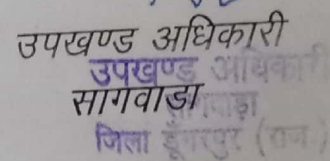 उपखण्ड अधिकारी
उपखण्ड अधिकारी
सागवाडा
सागवाड़ा
जिला डूँगरपुर (राज.)